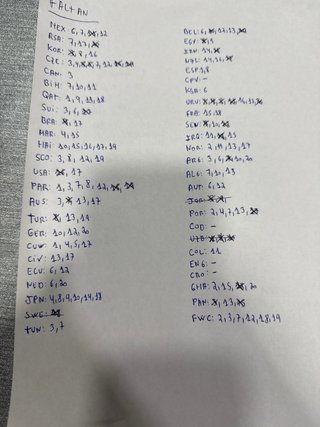 FALTAN
MEX: 6, 7, 12
RSA: 7, 17
KOR: 8, 16
CZE: 3, 4, 7, 12
CAN: 3
BIH: 7, 10, 11
QAT: 1, 9, 11, 18
SUI: 3, 6
BRA: 17
MAR: 4, 15
HAI: 10, 15, 16, 17, 19
SCO: 3, 8, 12, 19
USA: 17
PAR: 1, 3, 7, 8, 12
AUS: 3, 13, 17
TUR: 13, 19
GER: 10, 12, 20
CUW: 1, 4, 5, 17
CIV: 13, 17
ECU: 6, 12
NED: 6, 20
JPN: 4, 8, 9, 10, 14, 18
SWE:
TUN: 3, 7
BEL: 6, 12, 13
EGY: 9
IRN: 14
NZL: 14, 16
ESP: 1, 8
CPV: -
KSA: 6
URU:
FRA: 15, 18
SEN:
IRQ: 11, 15
NOR: 2, 11, 13, 17
ARG: 3, 6, 10, 20
ALG: 7, 10, 13
AUT: 6, 12
JOR:
POR: 2, 4, 7, 13
COD: -
UZB:
COL: 11
ENG: -
CRO: -
GHA: 2, 15, 20
PAN: 13
FWC: 2, 3, 7, 12, 18, 19